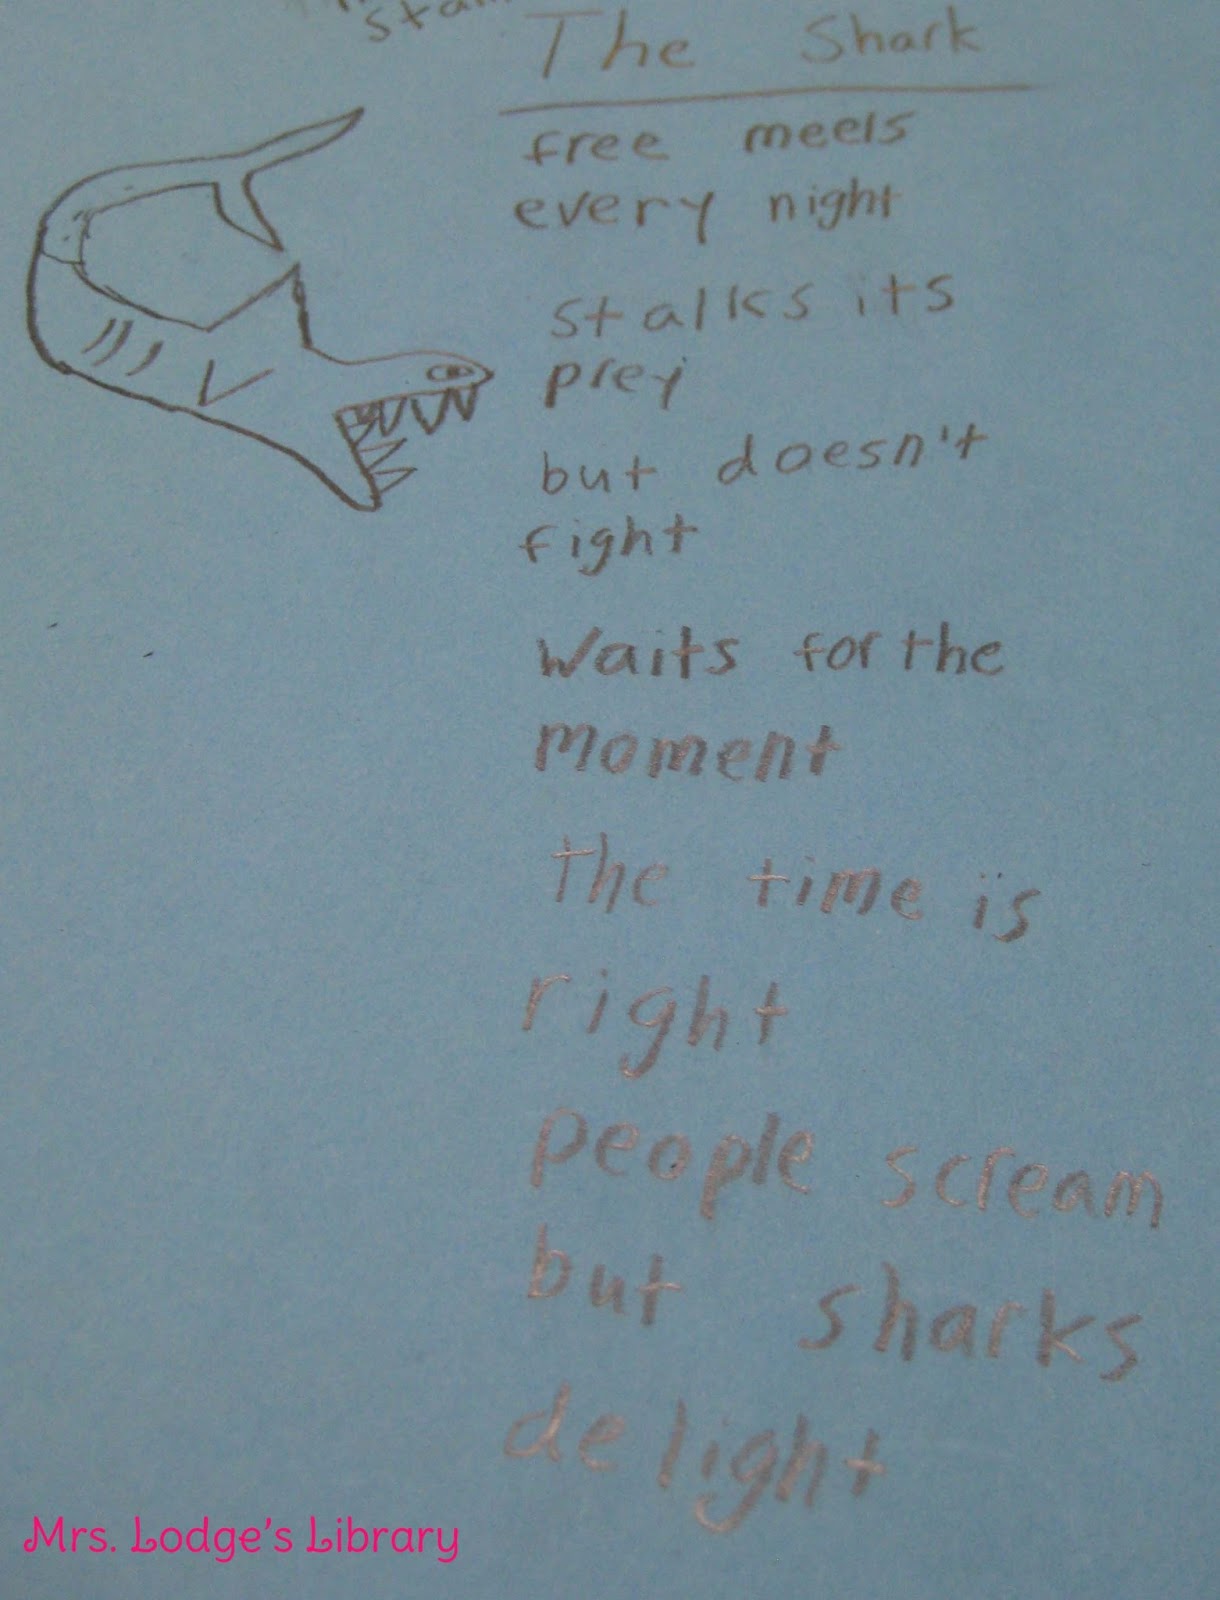 The Shark
free meels
every night
stalks its
prey
but doesn't
fight
Waits for the
moment
The time is
right
people scream
but sharks
delight
Mrs. Lodge's Library